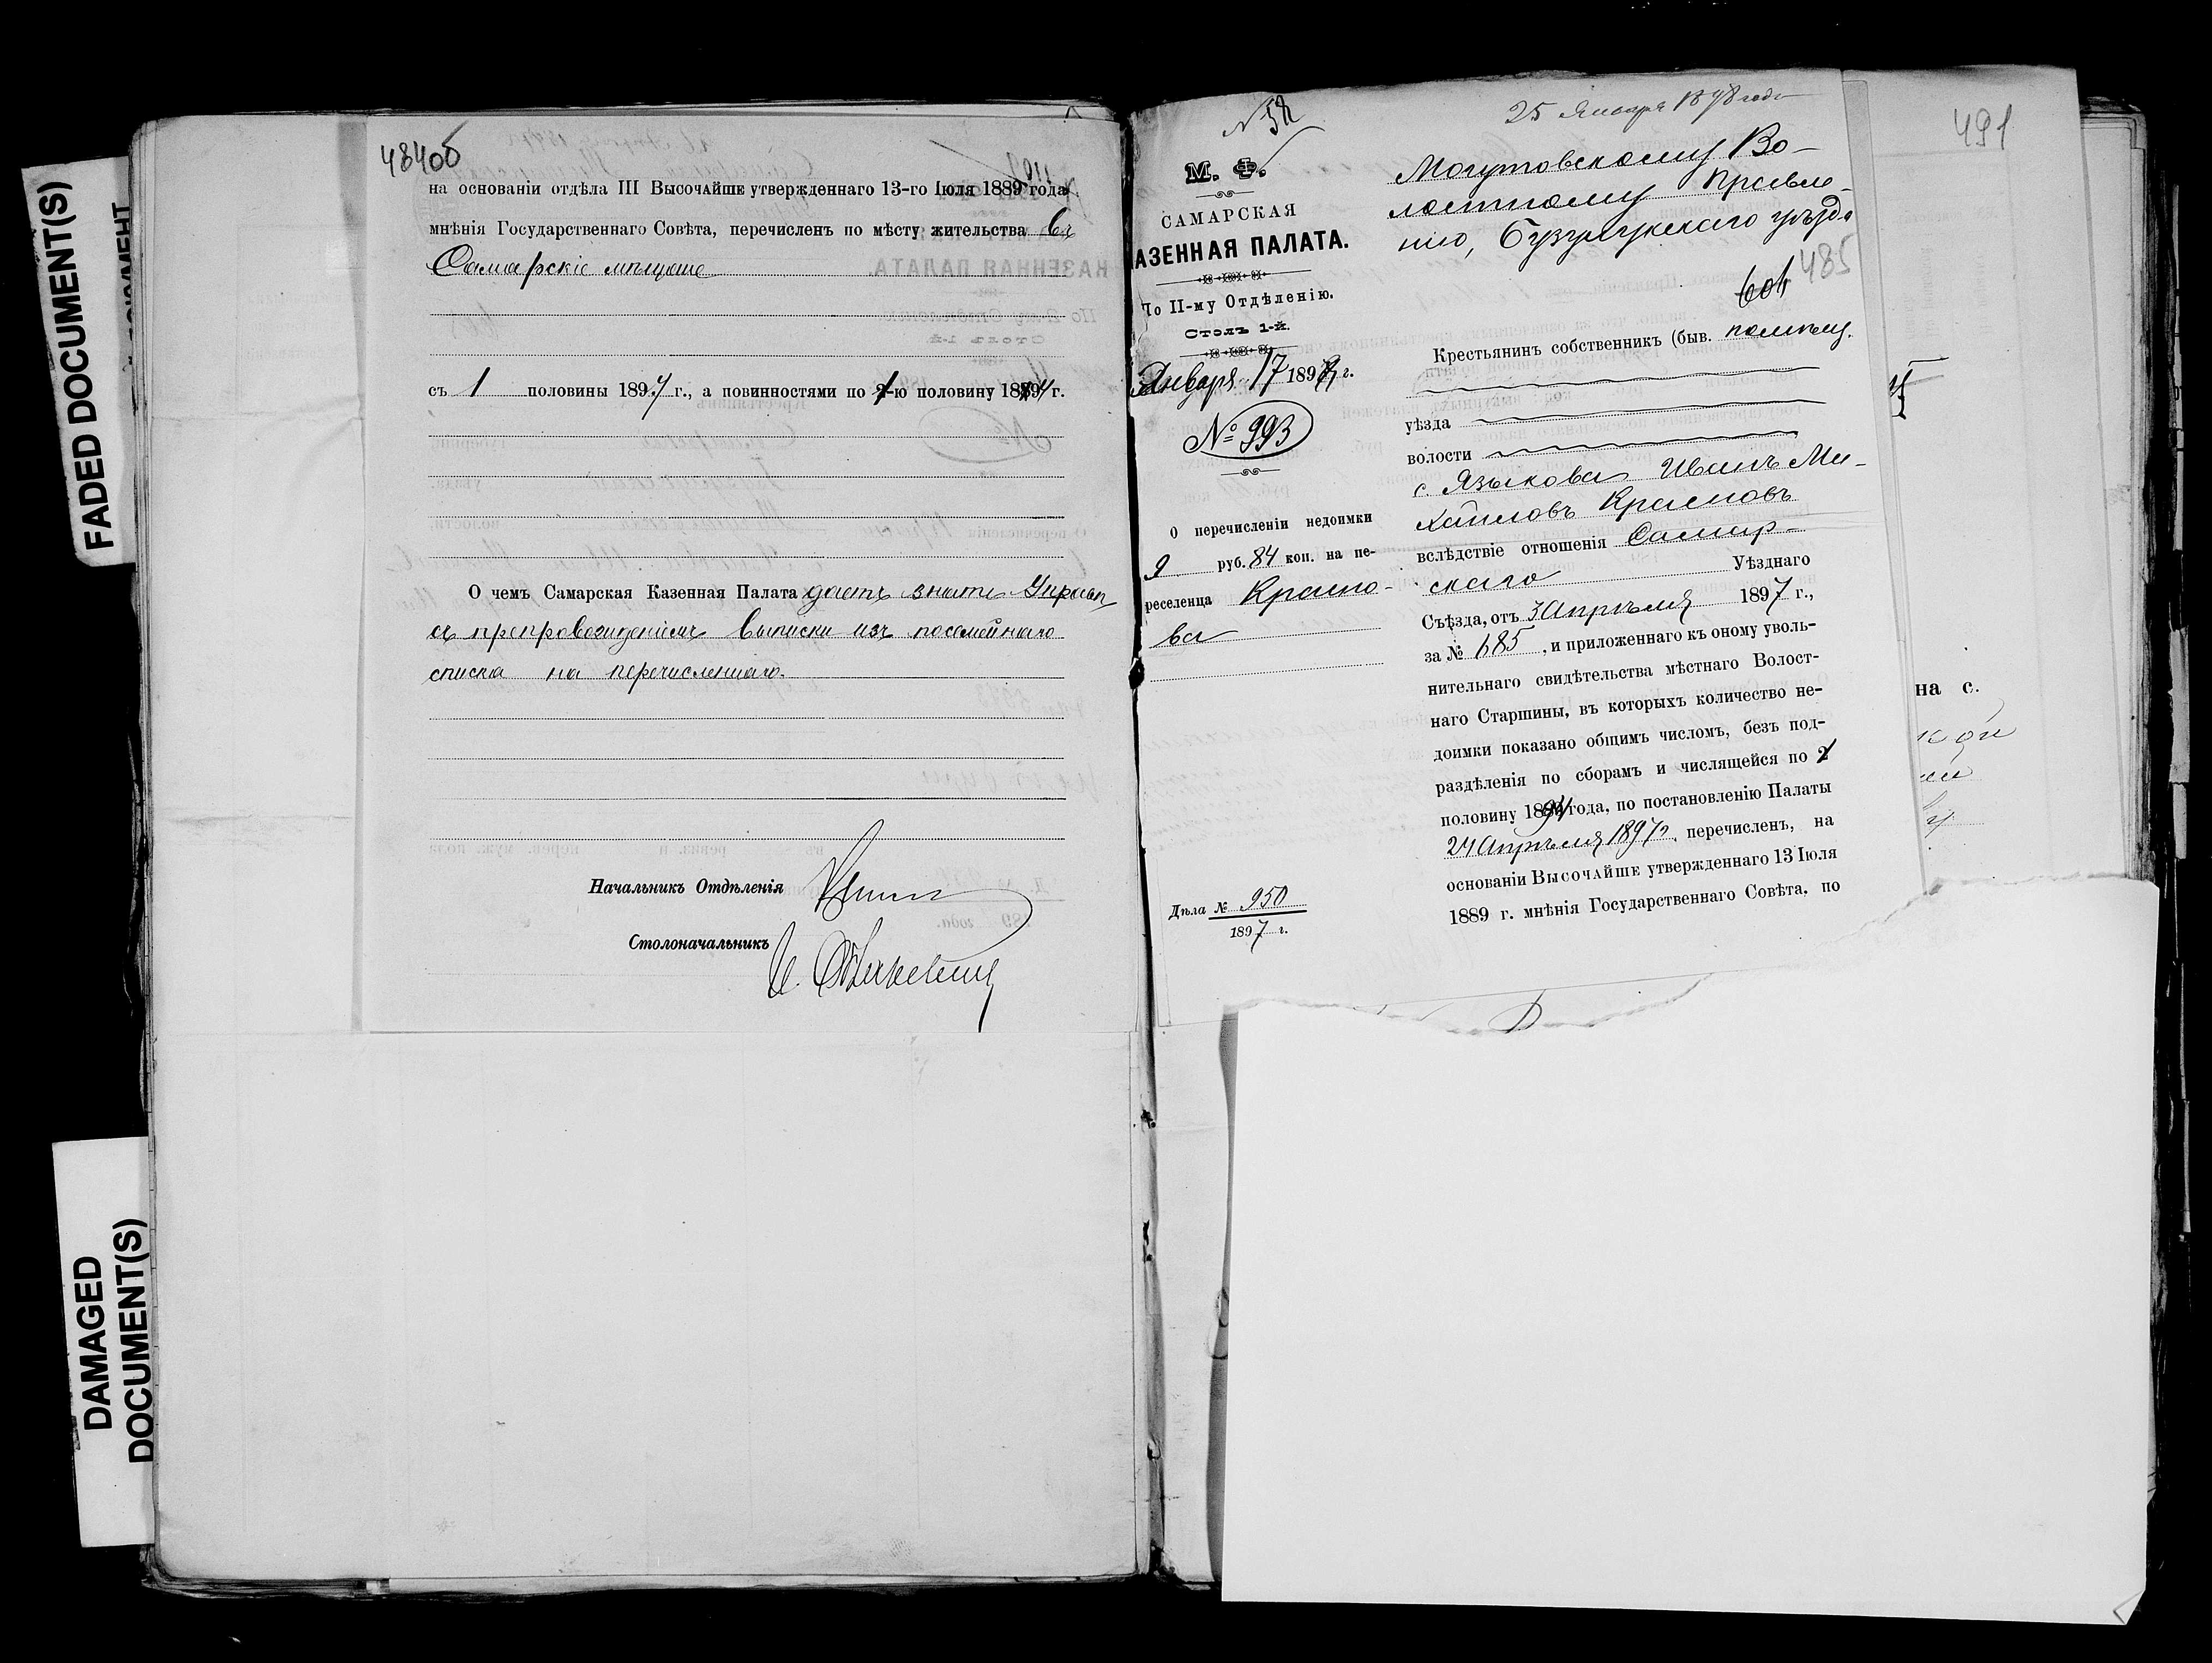 FADED DOCUMENT(S)
DAMAGED
DOCUMENT(S)
484об
на основаніи отдѣла III Высочайше утвержденнаго 13-го Іюля 1889 года
мнѣнія Государственнаго Совѣта, перечисленъ по мѣсту жительства въ
Самарскіе мѣщане
съ 1 половины 1897 г., а повинностями по 1-ю половину 1897 г.
О чемъ Самарская Казенная Палата даетъ знать Управѣ
съ препровожденіемъ выписки изъ посемейнаго
списка на перечисленнаго.
Начальникъ Отдѣленія
Столоначальникъ
№ 52
М. Ф.
САМАРСКАЯ
АЗЕННАЯ ПАЛАТА.
По II-му Отдѣленію.
Столъ 1-й.
Января 17 1898 г.
№ 993
О перечисленіи недоимки
9 руб. 84 коп. на пе-
реселенца Красно-
ва
Дѣла № 950
1897 г.
25 Января 1898 года
Могутовскому Во-
лостному Правле-
нію, Бузулукскаго уѣзда
485
Крестьянинъ собственникъ (быв. помѣщ.
уѣзда
волости
с. Языкова Иванъ Ми-
хайловъ Красновъ
вслѣдствіе отношенія Самар-
скаго Уѣзднаго
Съѣзда, отъ 3 Апрѣля 1897 г.,
за № 685, и приложеннаго къ оному уволь-
нительнаго свидѣтельства мѣстнаго Волост-
наго Старшины, въ которыхъ количество не-
доимки показано общимъ числомъ, безъ под-
раздѣленія по сборамъ и числящейся по
половину года, по постановленію Палаты
24 Апрѣля 1897 г. перечисленъ, на
основаніи Высочайше утвержденнаго 13 Іюля
1889 г. мнѣнія Государственнаго Совѣта, по
491
на с.